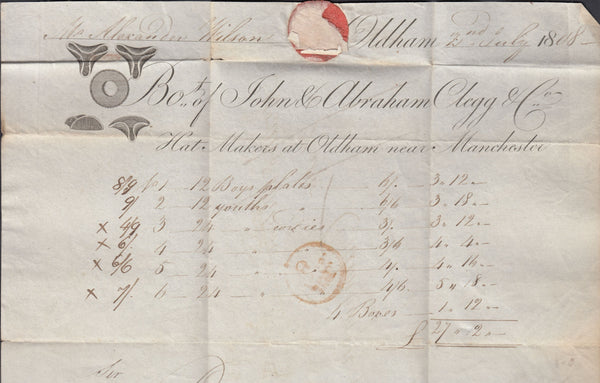 Mr Alexander Wilson Oldham 2nd July 1808
Bo.t of John & Abraham Clegg & Co.
Hat Makers at Oldham near Manchester
8/9 No 1 - 12 Boys plates 6/. 3 " 12 "
9/ 2 - 12 youths " 6/6 3 " 18 "
x 4/9 3 24 " 3/. 3 " 12 "
x 6/. 4 24 " " 3/6 4 " 4 "
x 6/6 5 24 " " 4/. 4 " 16 "
x 7/. 6 24 " " 4/6 5 " 8 "
4 Boxes 1 " 12 "
£ 27 " 2 "
Sir